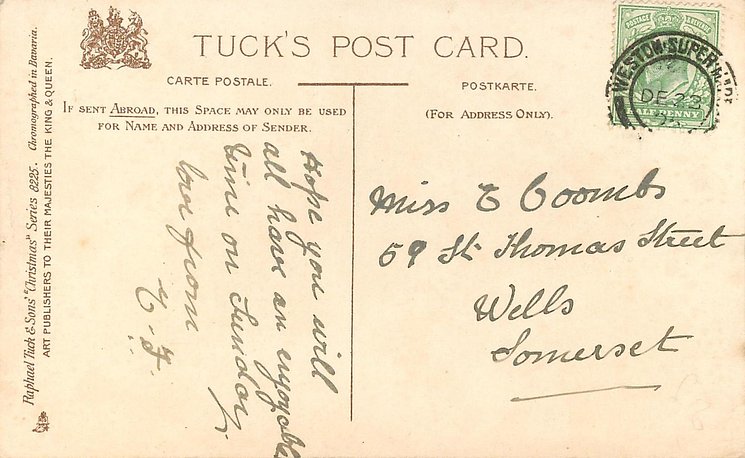 TUCK'S POST CARD.
CARTE POSTALE.
POSTKARTE.
IF SENT ABROAD, THIS SPACE MAY ONLY BE USED
FOR NAME AND ADDRESS OF SENDER.
(FOR ADDRESS ONLY).
Raphael Tuck & Sons' "Christmas" Series 8225. Chromographed in Bavaria.
ART PUBLISHERS TO THEIR MAJESTIES THE KING & QUEEN.
POSTAGE & REVENUE
WESTON-SUPER-MARE
DE 23
HALF PENNY
Hope you will
all have an enjoyable
time on Sunday
love from
Miss E Coombs
59 St Thomas Street
Wells
Somerset